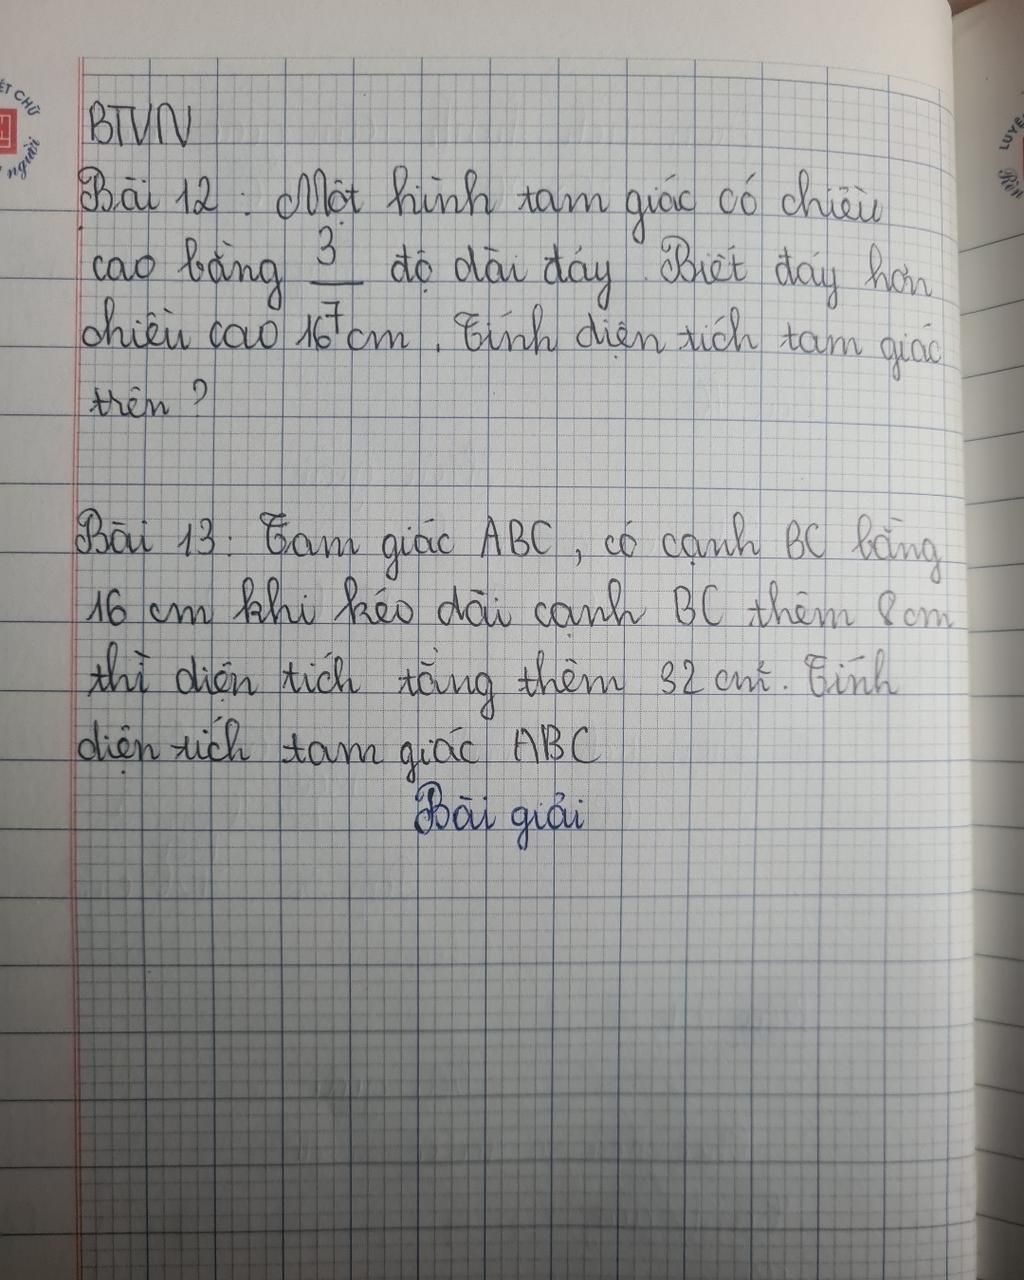 BTVN
Bài 12 : Một hình tam giác có chiều
cao bằng 3/7 độ dài đáy. Biết đáy hơn
chiều cao 16 cm. Tính diện tích tam giác
trên ?
Bài 13 : Tam giác ABC, có cạnh BC bằng
16 cm khi kéo dài cạnh BC thêm 8 cm
thì diện tích tăng thêm 32 cm². Tính
diện tích tam giác ABC
Bài giải
CHỮ
người
LUYỆ
Rèn